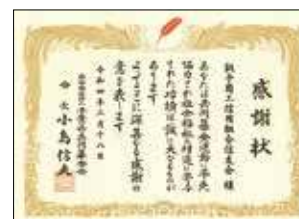 感謝状
銚子商工信用組合信友会 様
あなたは共同募金運動に率先
協力され社会福祉の増進に寄与
された功績は誠に大なるものが
あります
よってここに深甚なる感謝の
意を表します
令和四年三月十八日
会長 小島信夫